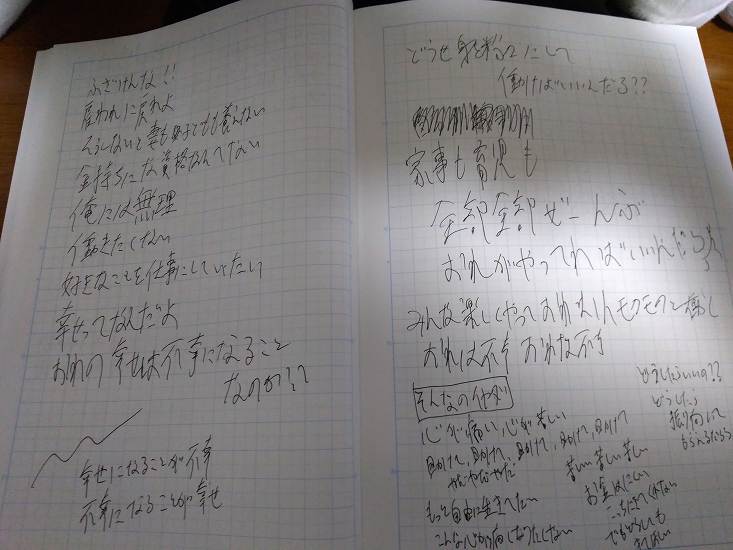 ふざけんな!!
雇われに戻れよ
そうしないと妻も好子ども養えない
金持ちになる資格なんてない
俺には無理
働きたくない
好きなことを仕事にしていたい
幸せってなんだよ
おれの幸せは不幸になること
なのか!?
幸せになることが不幸
不幸になることが幸せ
どうせ身を粉にして
働けばいいんだろ??
家事も育児も
全部全部ぜーんぶ
おれがやってればいいんだろ
みんな楽しくやって
おれは不幸 おれな不幸
そんなのイヤダ
心が痛い 心が苦しい
助けて、助けて、助けて、助けて、助けて
やだやだやだ
もっと自由に生きてたい
どうしたらいいの??
どうしたら
振り向いて
もらえるだろう
苦しい 苦しい 苦しい